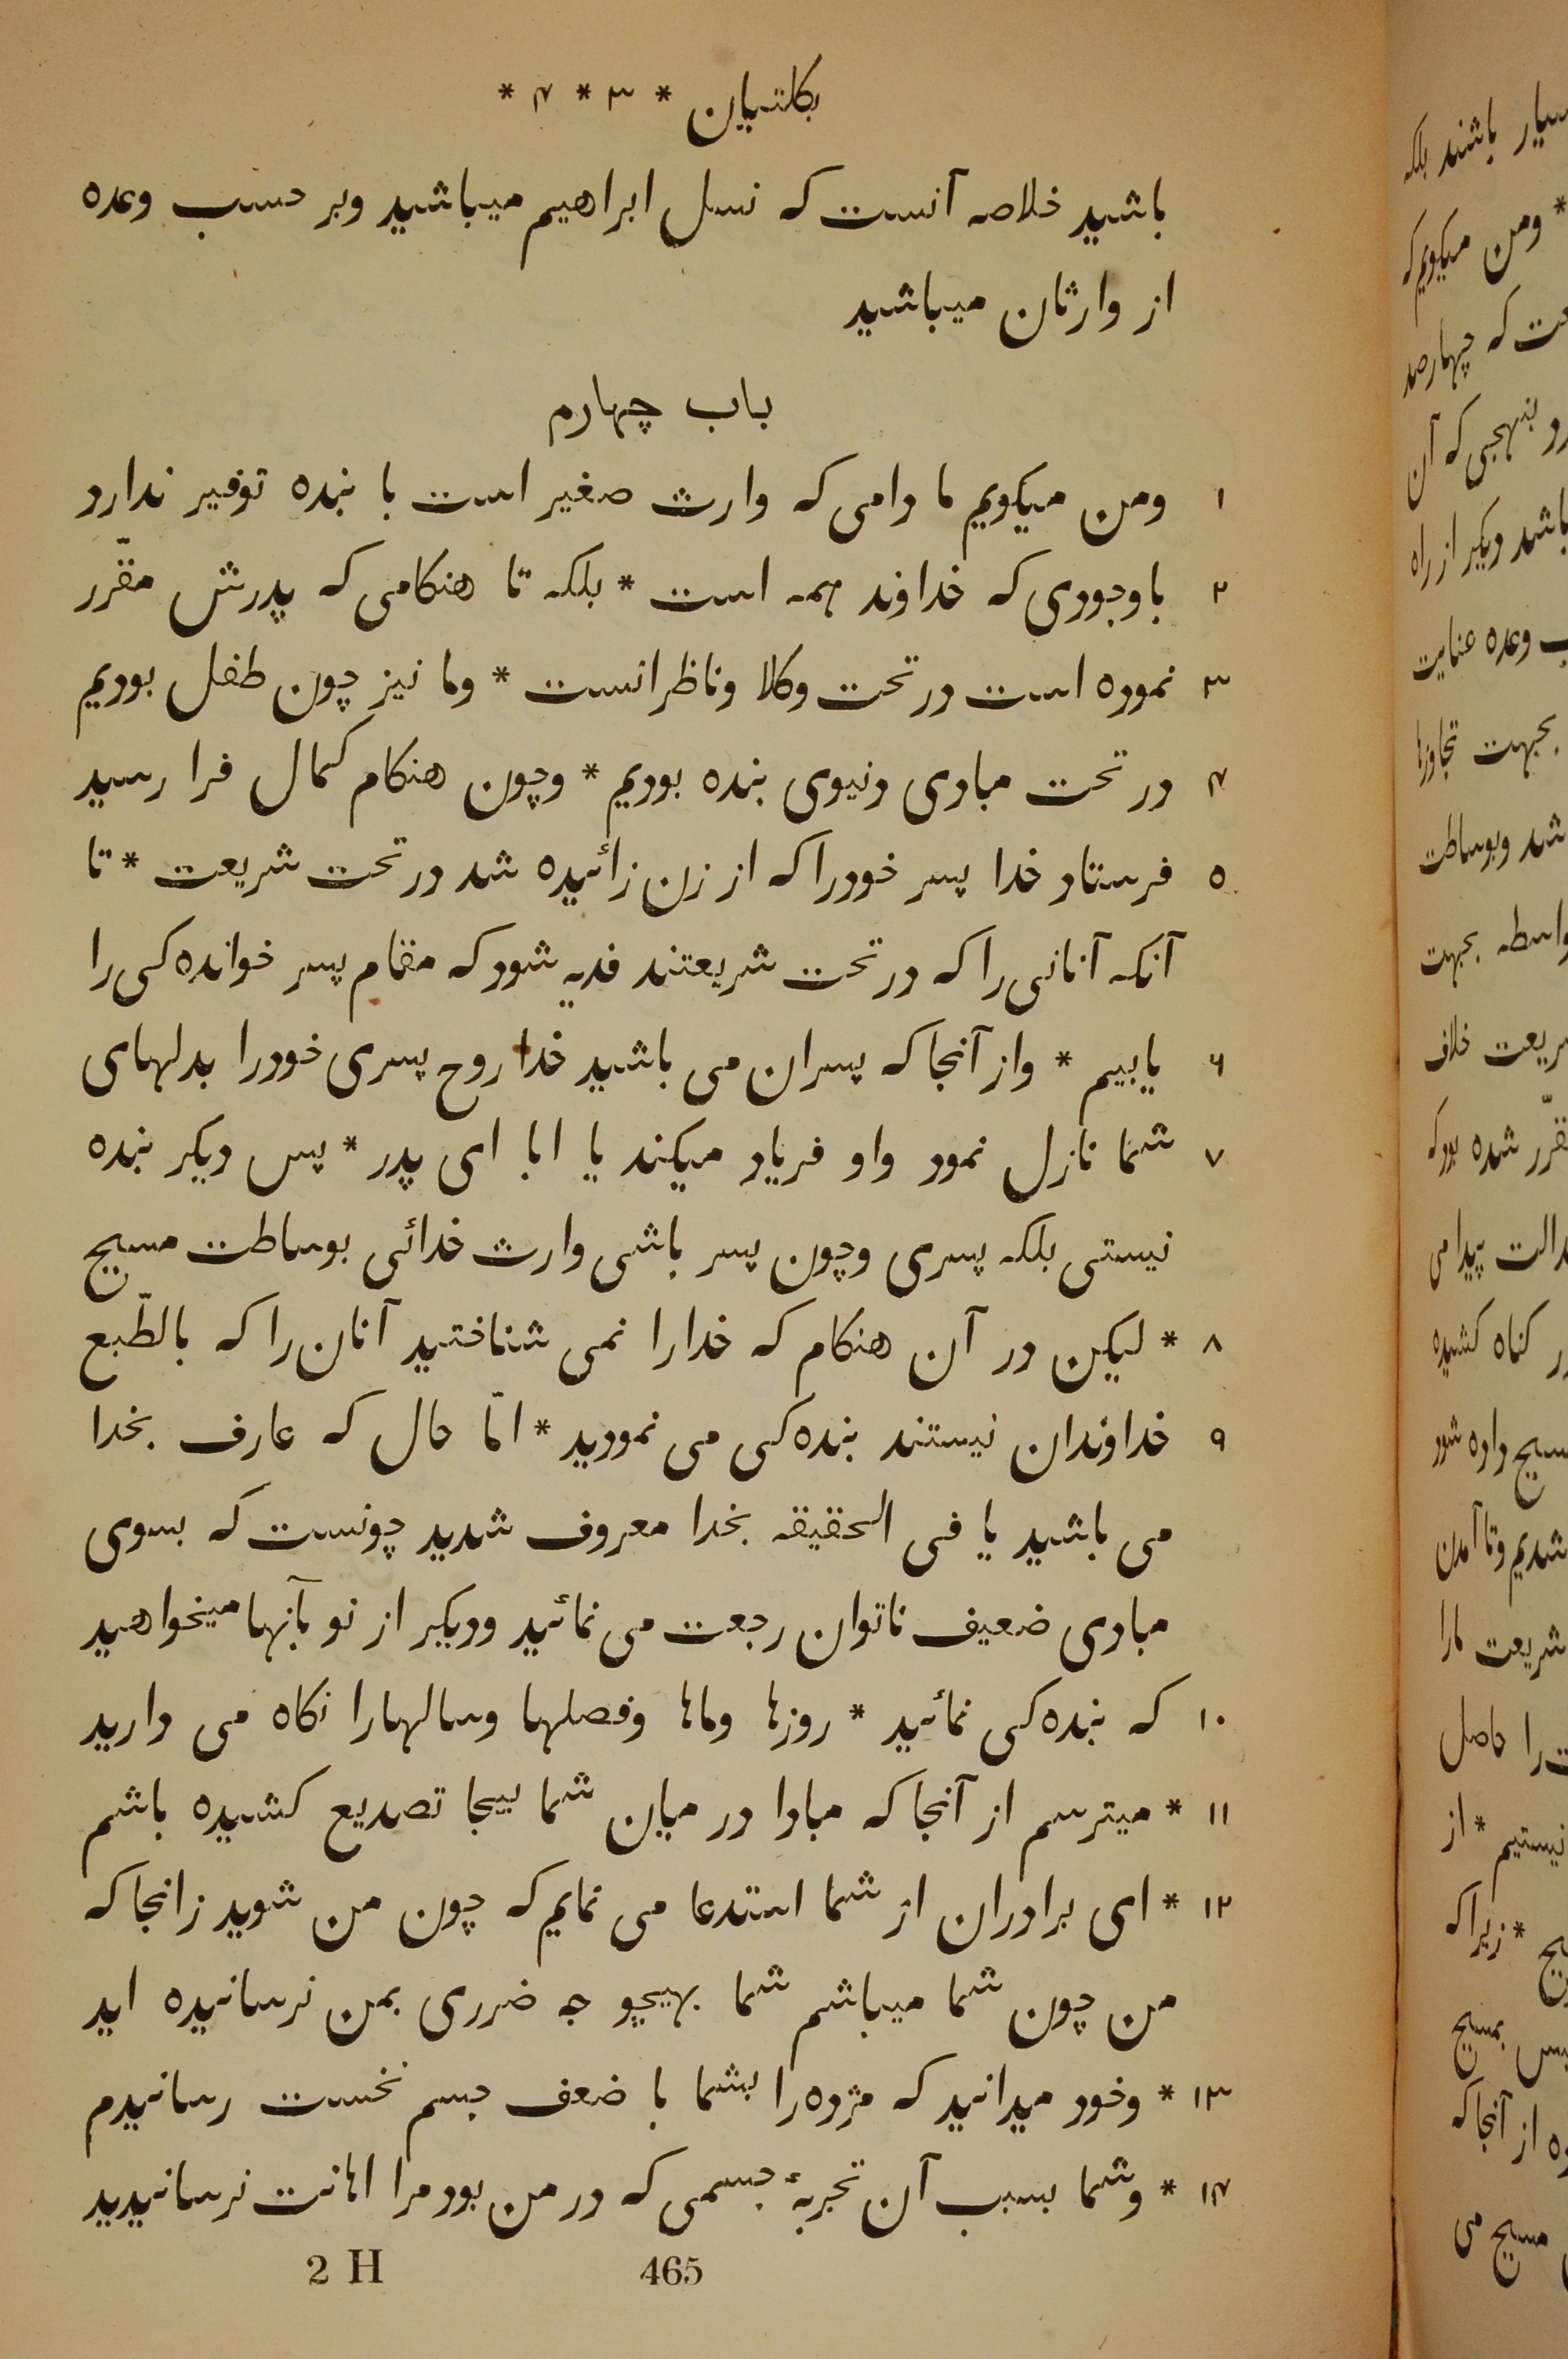 بکلتیان * ۳ * ۴ *
باشید خلاصه آنست که نسل ابراهیم میباشید وبر حسب وعده
از وارثان میباشید
باب چهارم
۱ ومن میکویم ما دامی که وارث صغیر است با بنده توفیر ندارد
۲ باوجودی که خداوند همه است * بلکه تا هنکامی که پدرش مقرّر
۳ نموده است در تحت وکلا وناظرانست * وما نیز چون طفل بودیم
۴ در تحت مبادی دنیوی بنده بودیم * وچون هنکام کمال فرا رسید
۵ فرستاد خدا پسر خودرا که از زن زائیده شد در تحت شریعت * تا
آنکه آنانی را که در تحت شریعتند فدیه شود که مقام پسر خوانده کی را
۶ یابیم * واز آنجا که پسران می باشید خدا روح پسری خودرا بدلهای
۷ شما نازل نمود واو فریاد میکند یا ابا ای پدر * پس دیکر بنده
نیستی بلکه پسری وچون پسر باشی وارث خدائی بوساطت مسیح
۸ * لیکن در آن هنکام که خدارا نمی شناختید آنان را که بالطّبع
۹ خداوندان نیستند بنده کی می نمودید * امّا حال که عارف بخدا
می باشید یا فی الحقیقه بخدا معروف شدید چونست که بسوی
مبادی ضعیف ناتوان رجعت می نمائید ودیکر از نو بآنها میخواهید
۱۰ که بنده کی نمائید * روزها وماها وفصلها وسالهارا نکاه می دارید
۱۱ * میترسم از آنجا که مبادا در میان شما بیجا تصدیع کشیده باشم
۱۲ * ای برادران از شما استدعا می نمایم که چون من شوید زانجا که
من چون شما میباشم شما بهیچو جه ضرری بمن نرسانیده اید
۱۳ * وخود میدانید که مژده را بشما با ضعف جسم نخست رسانیدم
۱۴ * وشما بسبب آن تجربهٔ جسمی که در من بود مرا اهانت نرسانیدید
465 2 H